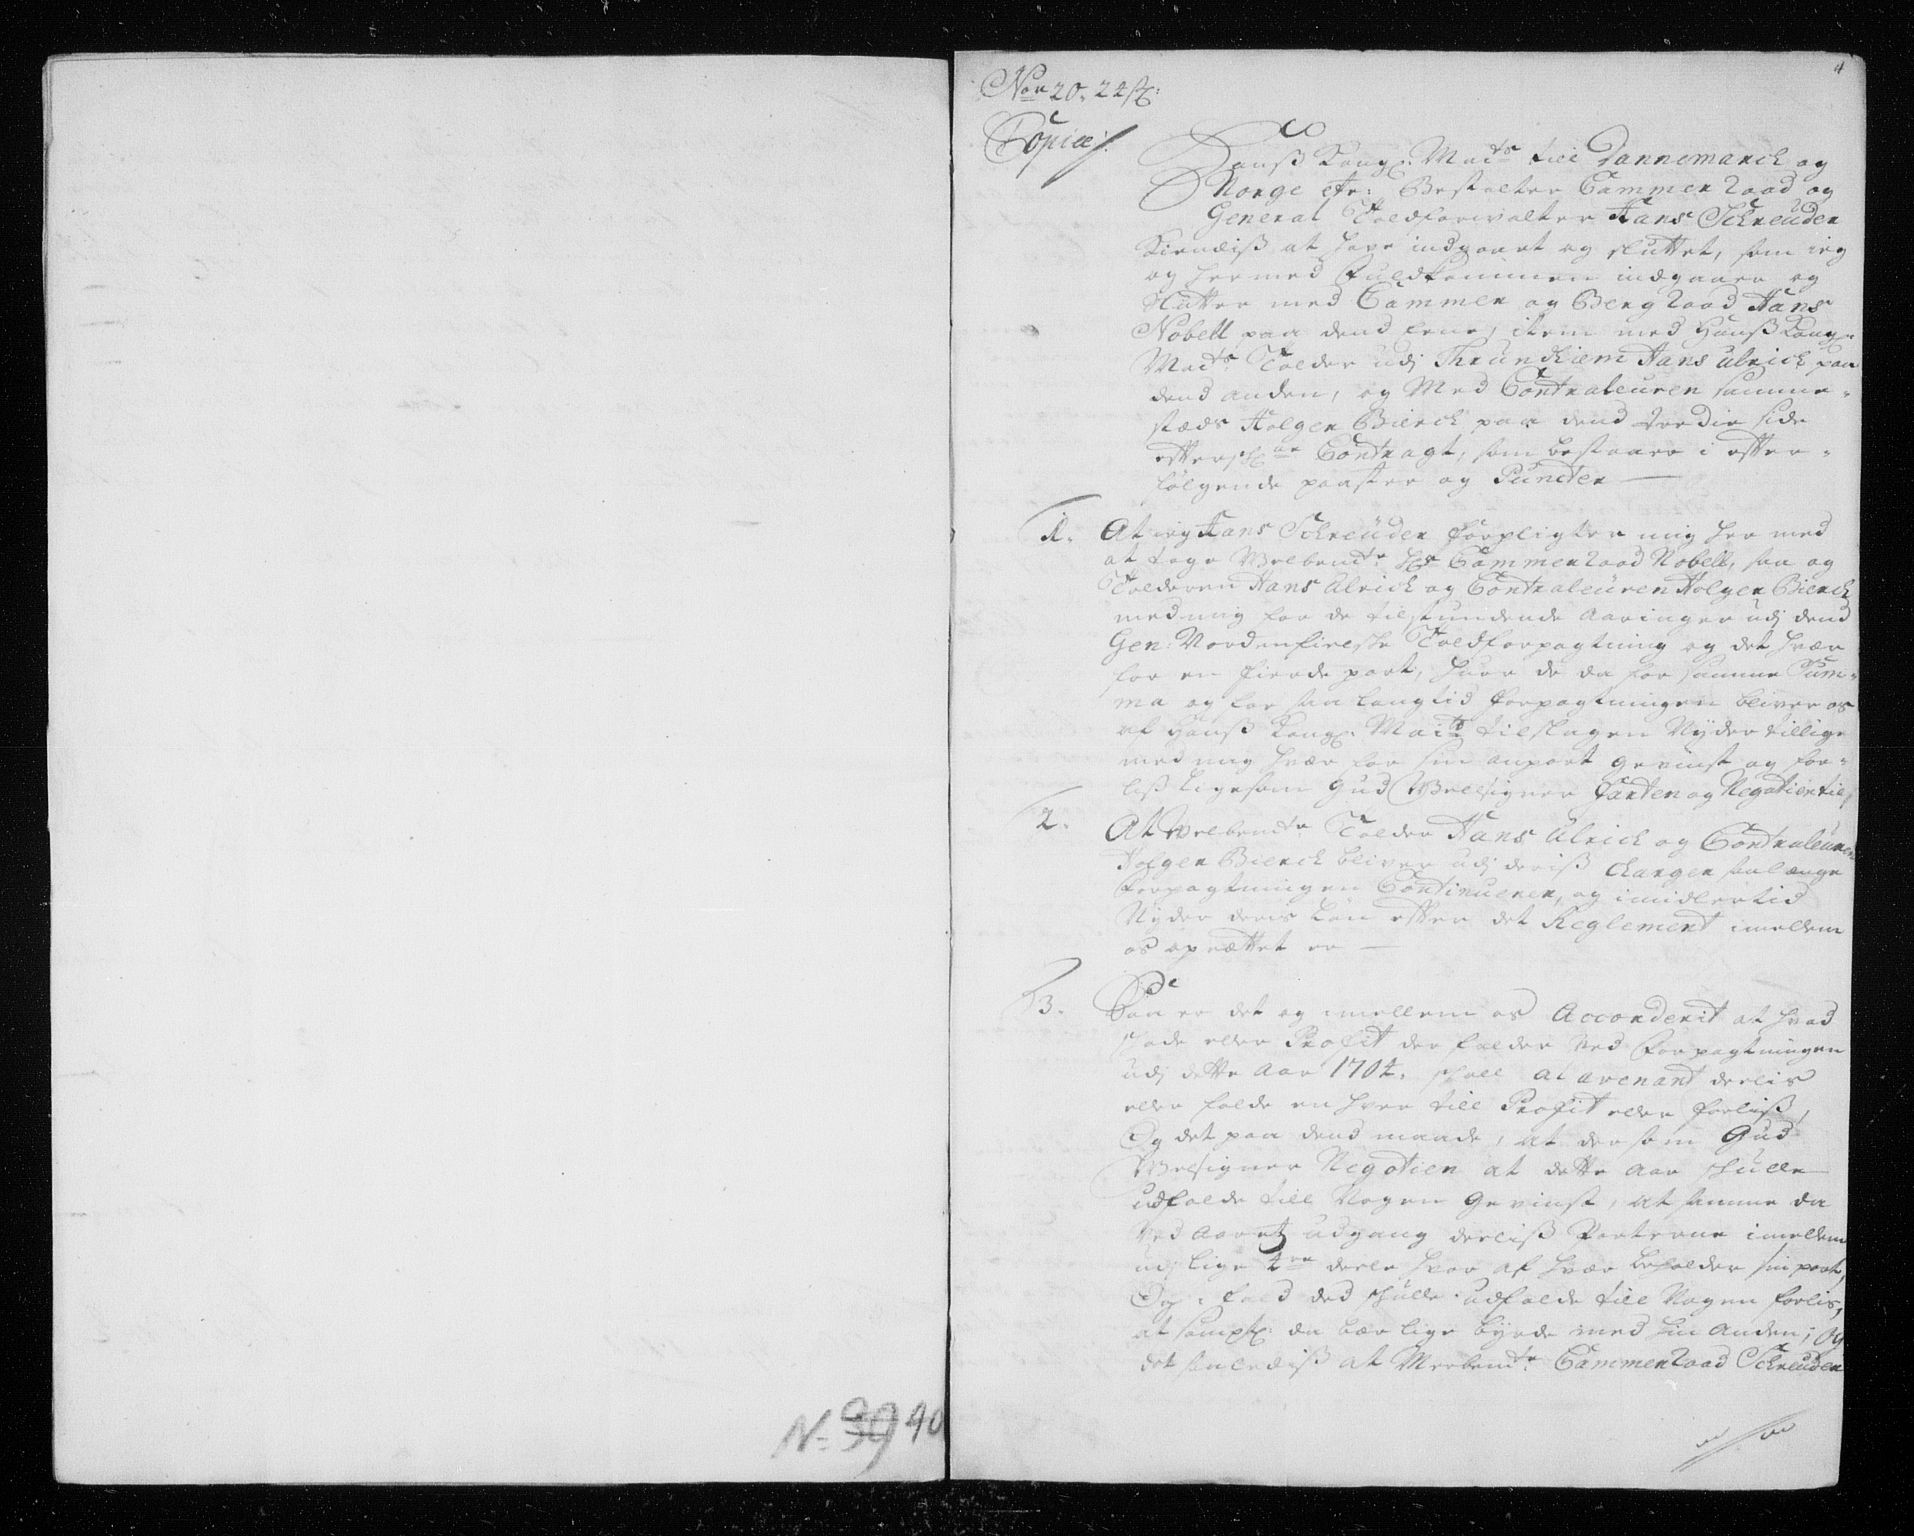 No 20. 24 sk:
Copia/.
4
Hanß Kongl. Mayts till Dannemarck og
Norge etc: Bestalter Cammer Raad og
General Toldforwalter Hans Schreüder
Kiendiß at have indgaaet og sluttet, som ieg
og hermed fuldkommen indgaaer og
slutter med Cammer og Berg Raad Hans
Nobell paa dend eene, item med Hanß Kongl.
Mayts Tolder udj Thrundhiem Hans Ulrich paa
dend anden, og Med Contraleuren samme-
stæds Holger Bierck paa dend Tredie side
efterschne Contragt, som bestaaer i efter-
følgende poaster og Puncter
1. At ieg Hans Schreüder forpligter mig her med
at tage Welbemte Hr Cammerraad Nobell, saa og
Tolderen Hans Ulrich og Contraleuren Holger Bierck
med mig for de tilstundende Aaringer udj dend
Gen: Nordenfieldske Toldforpagtning og det hvær
for en fierde part, hvor de da for samme Sum-
ma og for saa langtid forpagtningen bliver os
af Hanß Kongl. Mayts tilslagen Nyder tillige
med mig hvær for sin anpart gevinst og for-
liß ligesom Gud Welsigner Farten og Negotien til,
2. At Welbemte Tolder Hans Ulrich og Contraleuren
Holger Bierck bliver udj deriß Charger saa længe
forpagtningen Continuerer, og imidlertid
Nyder deris Løn efter det Reglement imellem
os oprættet er
3. Saa er det og imellem os Accorderit at hvad
skade eller Profit der falder ved forpagtningen
udj dette Aar 1704. skall al avenant deelis
eller falde en hver till Profit eller forliß,
Og det paa dend maade, at dersom Gud
Welsigner Negotien at dette Aar skulle
udfalde till Nogen Gevinst, at samme da
ved Aaretz udgang deeliß Parterne imellem
udj lige 4re deele hvor af hvær beholder sin part,
Og i fald det skulle udfalde till Nogen forlis,
at sampl: da bær lige byrde med hin Anden; Og
det saaledeß at Meerbemte Cammerraad Schreuder
N= 39 40